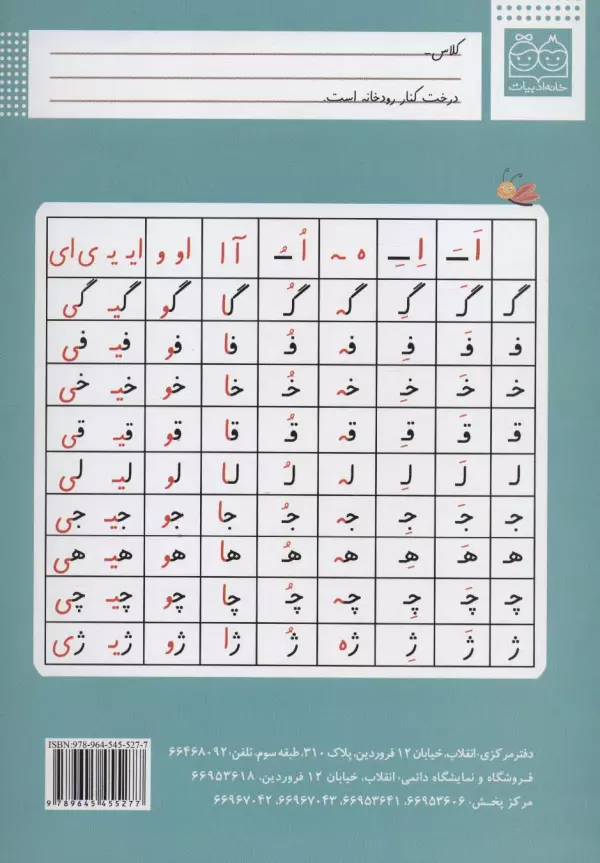 خانه ادبیات
کلاس
درخت کنار رودخانه است.
اَ ـَ اِ ـِ ه ـه اُ ـُ آ ا او و ایـ یـ ی ای
گـ گَـ گِـ گـه گُـ گا گو گیـ گی
فـ فَـ فِـ فـه فُـ فا فو فیـ فی
خـ خَـ خِـ خـه خُـ خا خو خیـ خی
قـ قَـ قِـ قـه قُـ قا قو قیـ قی
لـ لَـ لِـ لـه لُـ لـا لو لیـ لی
جـ جَـ جِـ جـه جُـ جا جو جیـ جی
هـ هَـ هِـ هـه هُـ ها هو هیـ هی
چـ چَـ چِـ چـه چُـ چا چو چیـ چی
ژ ژَ ژِ ژه ژُ ژا ژو ژیـ ژی
ISBN: 978-964-545-527-7
9 789645 455277
دفتر مرکزی: انقلاب، خیابان ۱۲ فروردین، پلاک ۳۱۰، طبقه سوم، تلفن: ۶۶۴۶۸۰۹۲
فروشگاه و نمایشگاه دائمی: انقلاب، خیابان ۱۲ فروردین، ۶۶۹۵۳۶۱۸
مرکز پخش: ۶۶۹۵۳۶۰۶، ۶۶۹۵۳۶۴۱، ۶۶۹۶۷۰۴۳، ۶۶۹۶۷۰۴۲